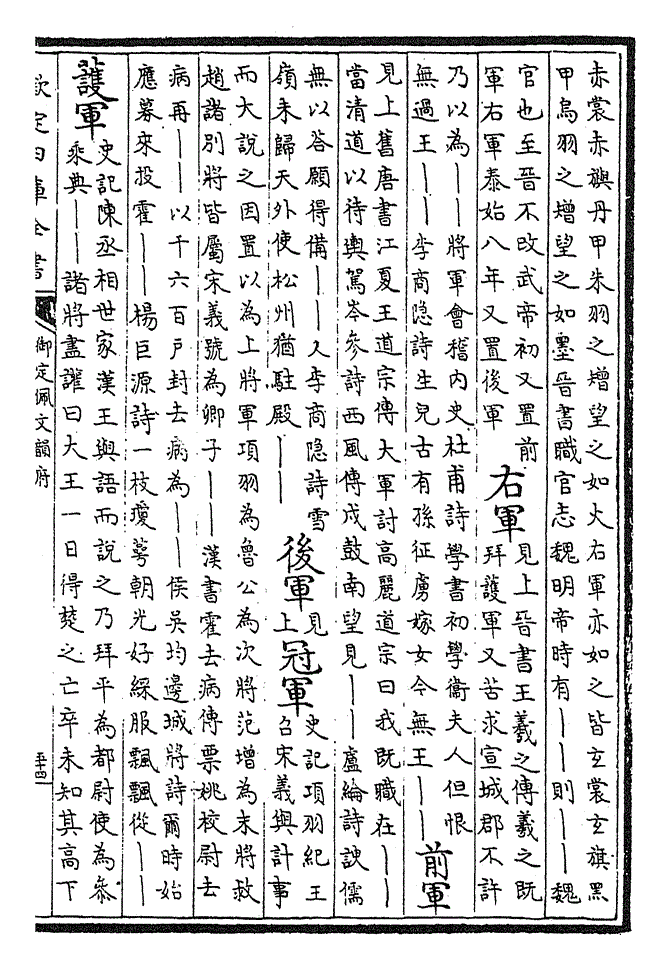 赤裳赤旟丹甲朱羽之矰望之如火右軍亦如之皆玄裳玄旗黑
甲烏羽之矰望之如墨晉書職官志魏明帝時有——則——魏
官也至晉不改武帝初又置前
軍右軍泰始八年又置後軍
右軍
見上晉書王羲之傳羲之既
拜護軍又苦求宣城郡不許
乃以為——將軍會稽内史杜甫詩學書初學衞夫人但恨
無過王——李商隠詩生兒古有孫征虜嫁女今無王——
前軍
見上舊唐書江夏王道宗傳大軍討高麗道宗曰我既職在——
當清道以待輿駕岑參詩西風傳戍鼓南望見——盧綸詩諛儒
無以答願得備——人李商隠詩雪
嶺未歸天外使松州猶駐殿——
後軍
見
上
冠軍
史記項羽紀王
召宋義與計事
而大說之因置以為上將軍項羽為魯公為次將范增為末將救
趙諸別將皆屬宋義號為卿子——漢書霍去病傳票姚校尉去
病再——以千六百戸封去病為——侯吳均邊城將詩爾時始
應募來投霍——楊巨源詩一枝瓊萼朝光好綵服飄飄從——
護軍
史記陳丞相世家漢王與語而說之乃拜平為都尉使為參
乘典——諸將盡讙曰大王一日得楚之亡卒未知其高下
欽定四庫全書
御定佩文韻府